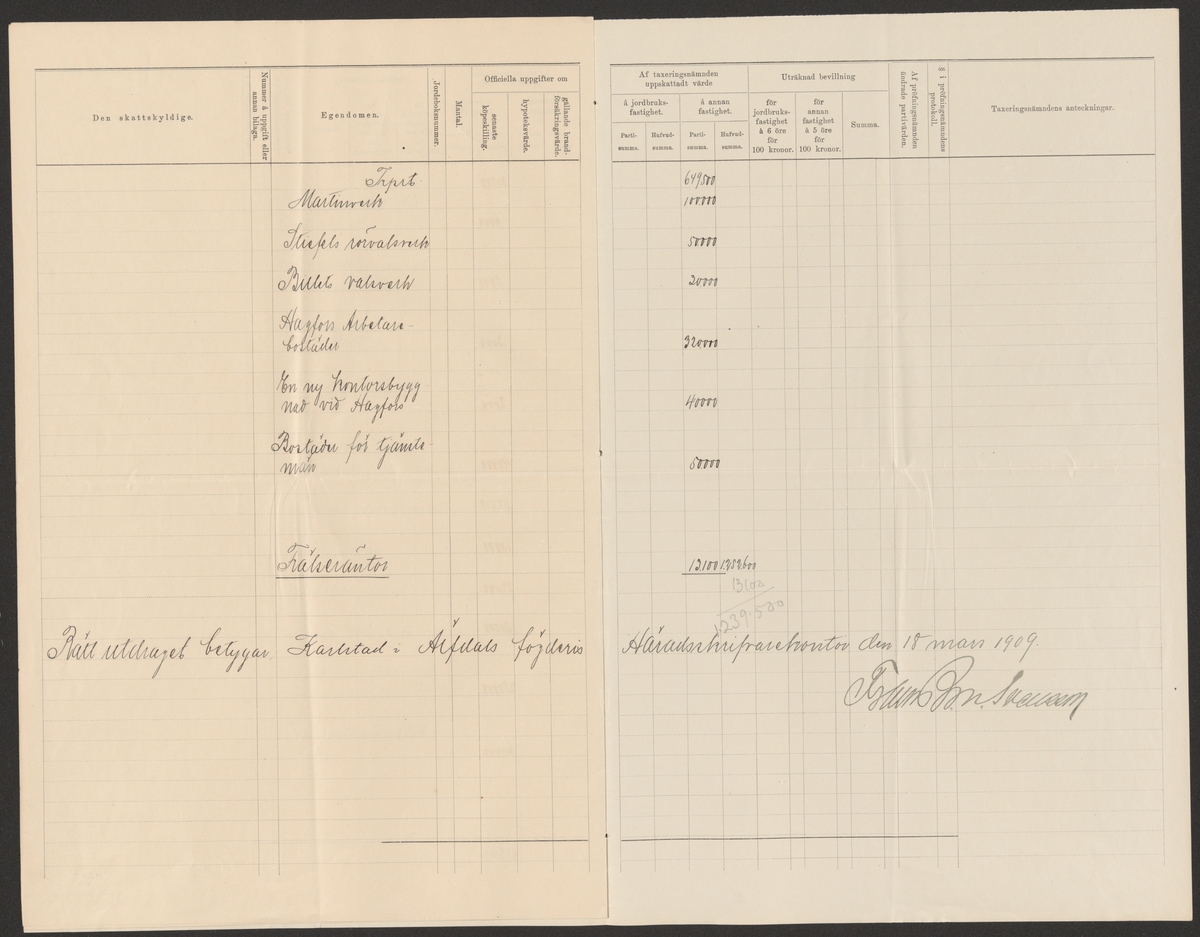 Den skattskyldige.
Nummer å uppgift eller annan bilaga.
Egendomen.
Jordeboksnummer.
Mantal.
Officiella uppgifter om
senaste köpeskilling.
hypoteksvärde.
gällande brandförsäkringsvärde.
Af taxeringsnämnden uppskattadt värde
å jordbruksfastighet.
å annan fastighet.
Partisumma.
Hufvudsumma.
Partisumma.
Hufvudsumma.
Uträknad bevillning
för jordbruksfastighet à 6 öre för 100 kronor.
för annan fastighet à 5 öre för 100 kronor.
Summa.
Af pröfningsnämnden ändrade partivärden.
§ i pröfningsnämndens protokoll.
Taxeringsnämndens anteckningar.
Trprt 649500
Martinverk 100000
Stiefels rörvalsverk 50000
Billets valsverk 30000
Hagfors Arbetare-
bostäder 320000
En ny kontorsbygg
nad vid Hagfors 40000
Bostäder för tjänste-
män 50000
Frälseräntor 13100 1252600
13100
1239500
Rätt utdraget betygar Karlstad i Älfdals fögderis Häradsskrifvarekontor den 18 mars 1909.
Svensson